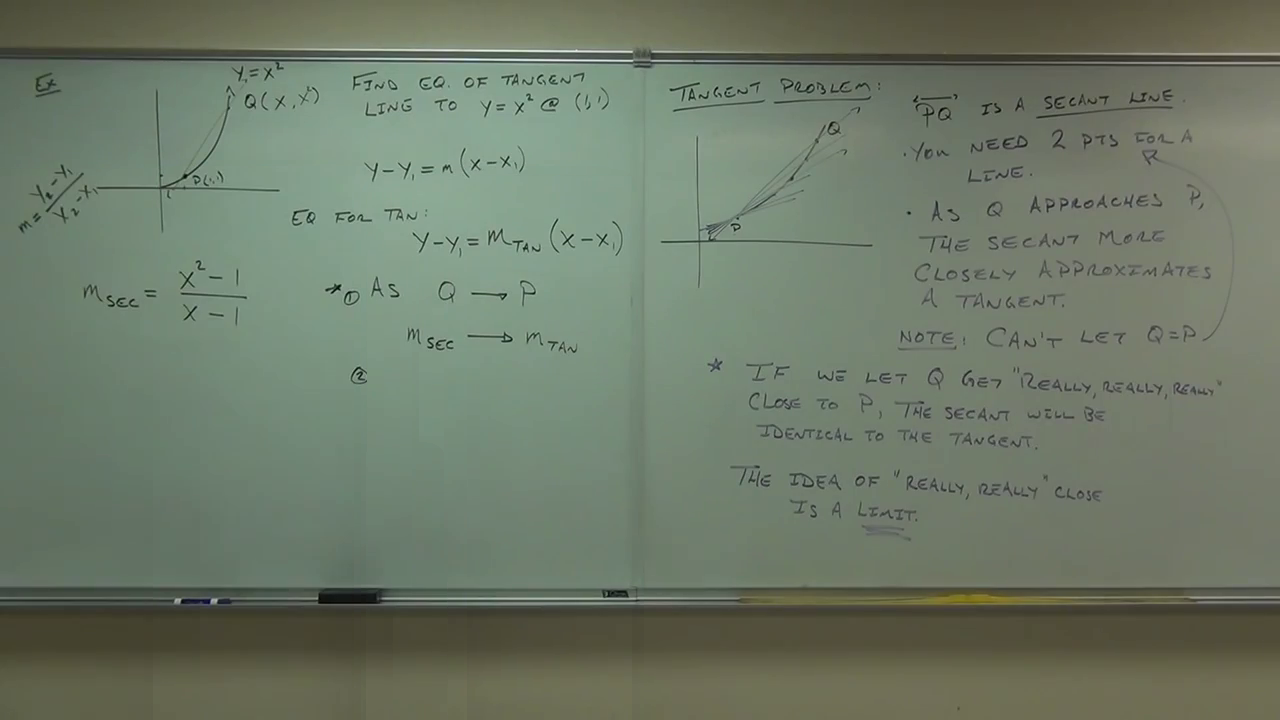 Ex
y = x²
Q(x, x²)
P(1,1)
1
m = y₂ - y₁ / x₂ - x₁
FIND EQ. OF TANGENT
LINE TO y = x² @ (1,1)
y - y₁ = m(x - x₁)
EQ FOR TAN:
y - y₁ = m_TAN (x - x₁)
m_SEC = x² - 1 / x - 1
* ① AS Q → P
m_SEC → m_TAN
②
TANGENT PROBLEM:
Q
P
"PQ" IS A SECANT LINE.
• YOU NEED 2 PTS FOR A
LINE.
• AS Q APPROACHES P,
THE SECANT MORE
CLOSELY APPROXIMATES
A TANGENT.
NOTE: CAN'T LET Q=P
* IF WE LET Q GET "REALLY, REALLY, REALLY"
CLOSE TO P, THE SECANT WILL BE
IDENTICAL TO THE TANGENT.
THE IDEA OF "REALLY, REALLY" CLOSE
IS A LIMIT.